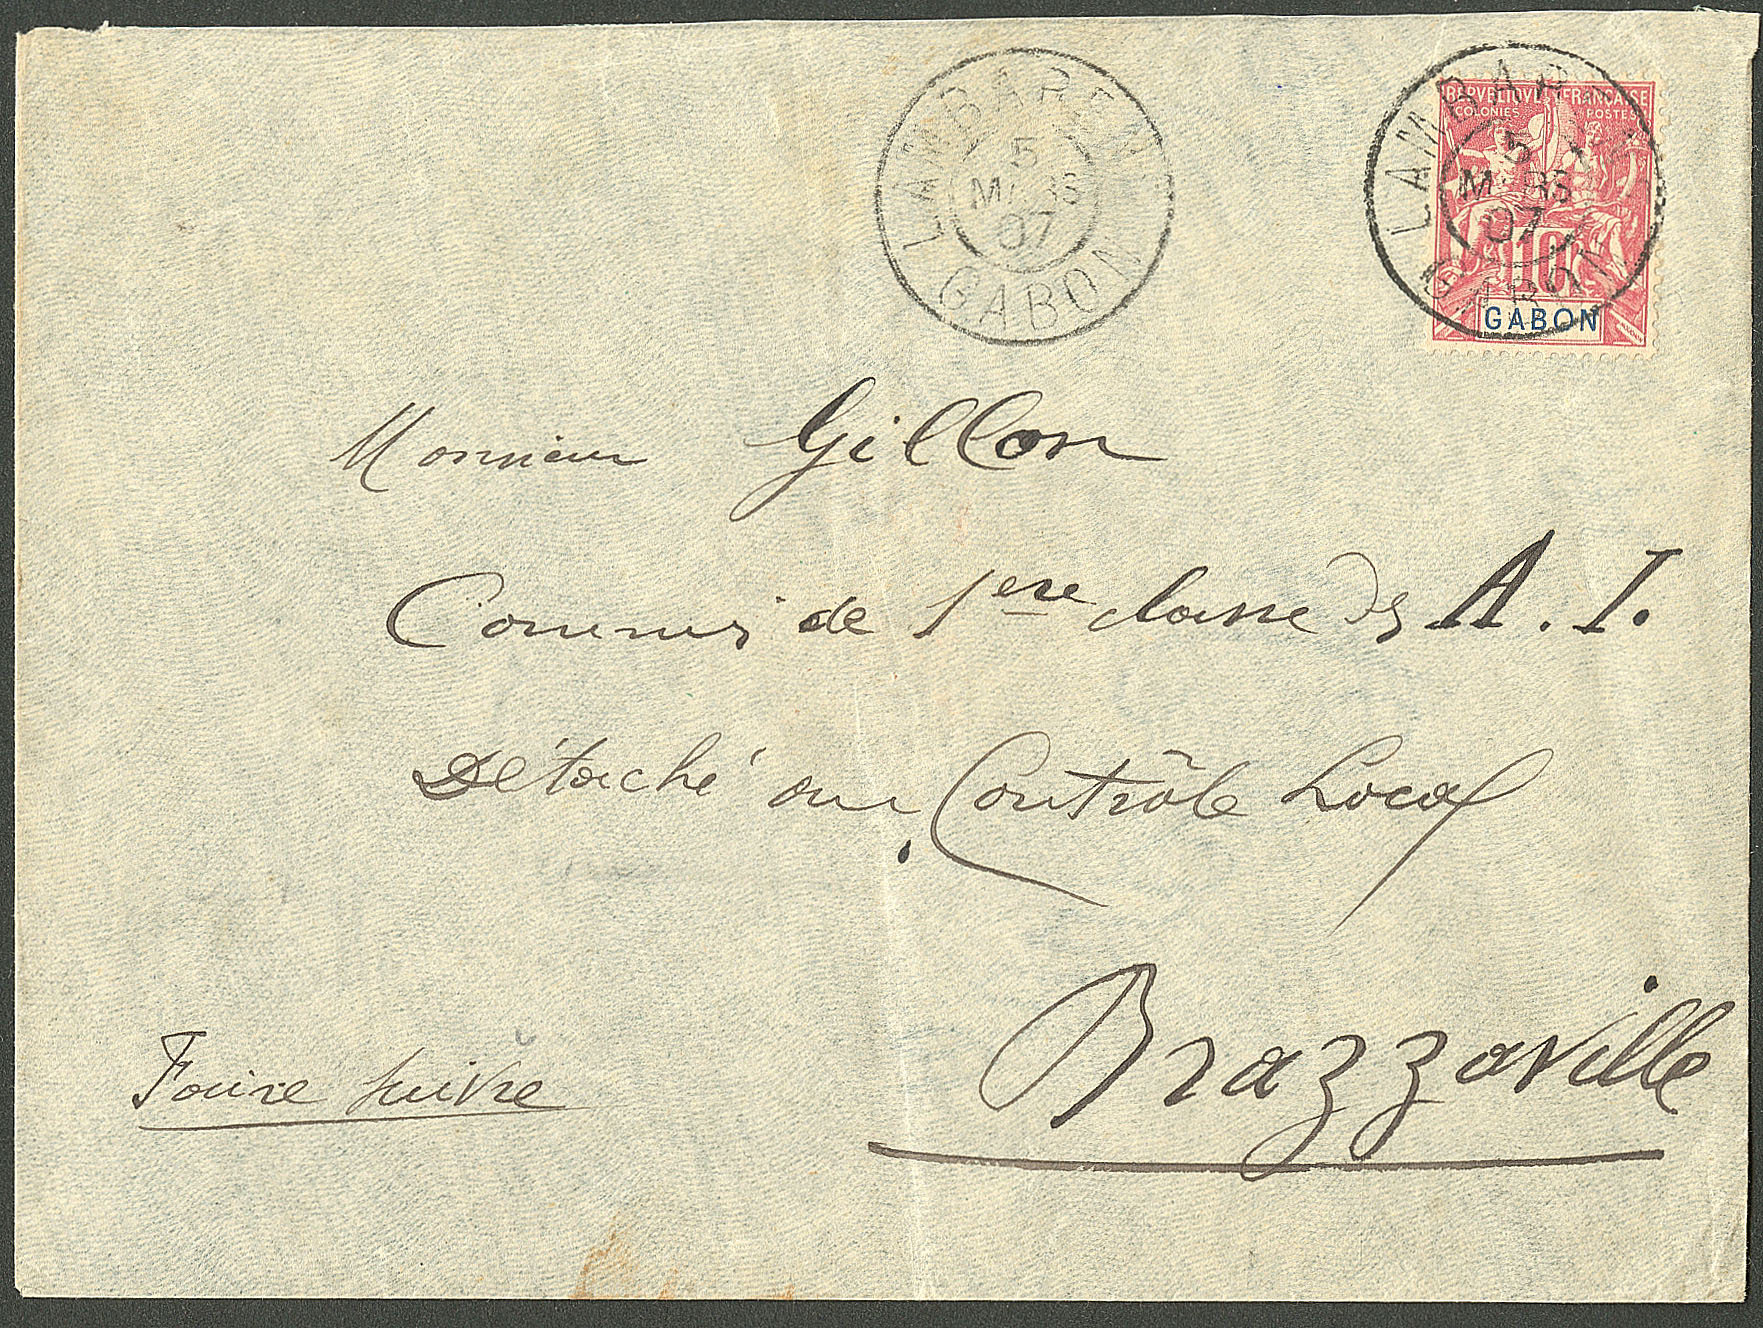 LAMBARENE
5
MARS
07
GABON
LAMBARENE
5
MARS
07
GABON
REPUBLIQUE FRANCAISE
COLONIES POSTES
10
GABON
Monsieur Gillon
Commis de 1ere classe des A. I.
Détaché au Contrôle Local
Brazzaville
Faire suivre